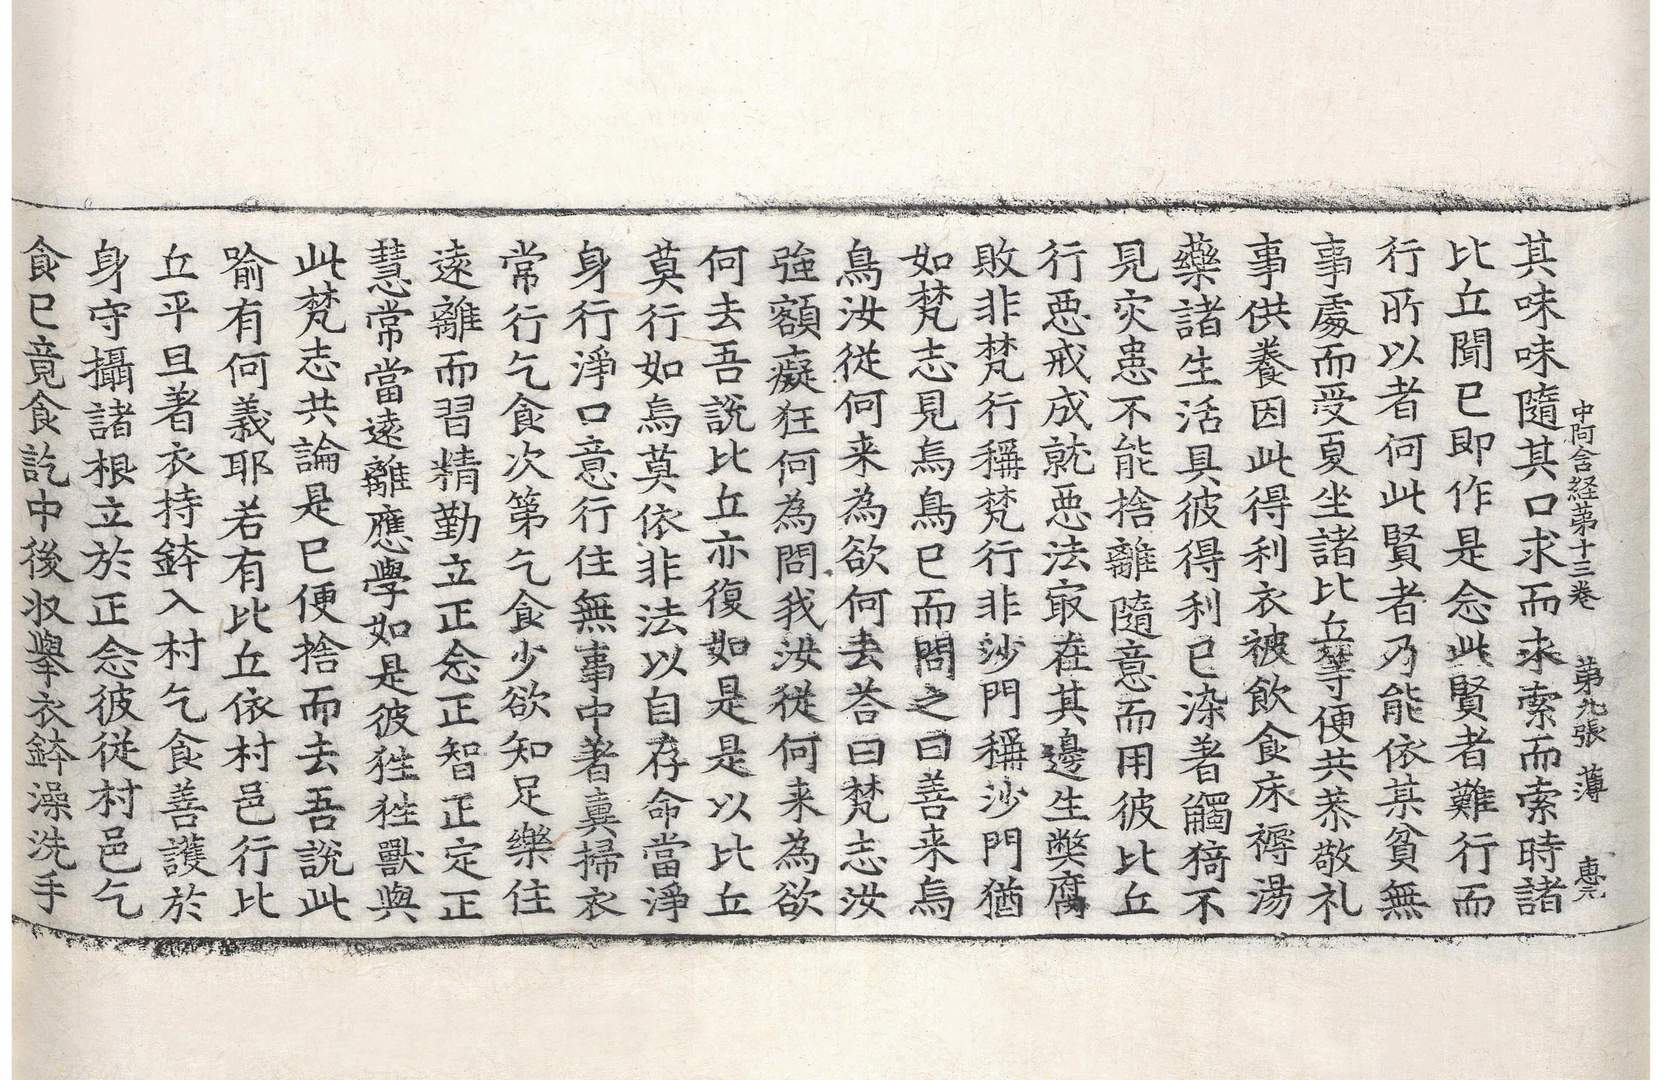 中阿含経第十三卷 第九張 薄 惠元
其味味隨其口求而求索而索時諸
比丘聞已即作是念此賢者難行而
行所以者何此賢者乃能依某貧無
事處而受夏坐諸比丘等便共恭敬礼
事供養因此得利衣被飲食床褥湯
藥諸生活具彼得利已染著觸猗不
見灾患不能捨離隨意而用彼比丘
行惡戒成就惡法㝡在其邊生弊腐
敗非梵行稱梵行非沙門稱沙門猶
如梵志見烏烏已而問之曰善来烏
烏汝從何来為欲何去荅曰梵志汝
強額癡狂何為問我汝從何来為欲
何去吾說比丘亦復如是是以比丘
莫行如烏莫依非法以自存命當淨
身行淨口意行住無事中著糞掃衣
常行乞食次第乞食少欲知足樂住
遠離而習精勤立正念正智正定正
慧常當遠離應學如是彼狌狌獸與
此梵志共論是已便捨而去吾說此
喻有何義耶若有比丘依村邑行比
丘平旦著衣持鉢入村乞食善護於
身守攝諸根立於正念彼從村邑乞
食已竟食訖中後収舉衣鉢澡洗手